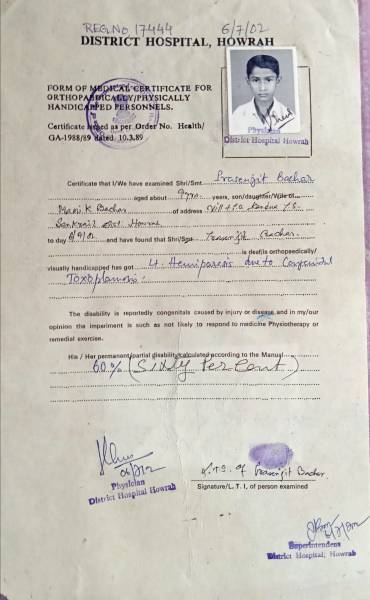 REG.NO 17444 6/7/02
DISTRICT HOSPITAL, HOWRAH
FORM OF MEDICAL CERTIFICATE FOR
ORTHOPAEDICALLY/PHYSICALLY
HANDICAPPED PERSONNELS.
Certificate issued as per Order No. Health/
GA-1988/89 dated 10.3.89
Physician
District Hospital Howrah
Certificate that I/We have examined Shri/Smt Prasenjit Bachar
aged about 9yrs. years, son/daughter/Wife of
K Bachar of address Vill & P.O.
Sankrail Dist Howrah
to day and have found that Shri/Smt Prasenjit Bachar.
is deaf/is orthopaedically/
visually handicapped has got Hemiparesis due to Congenital
Toxoplasmosis.
The disability is reportedly congenitals caused by injury or disease and in my/our
opinion the imperiment is such as not likely to respond to medicine Physiotherapy or
remedial exercise.
His / Her permanent/partial disability calculated according to the Manual
60% (Sixty Per Cent)
L.T.I. of Prasenjit Bachar
Physician
District Hospital Howrah
Signature/L. T. I, of person examined
Superintendent
District Hospital, Howrah